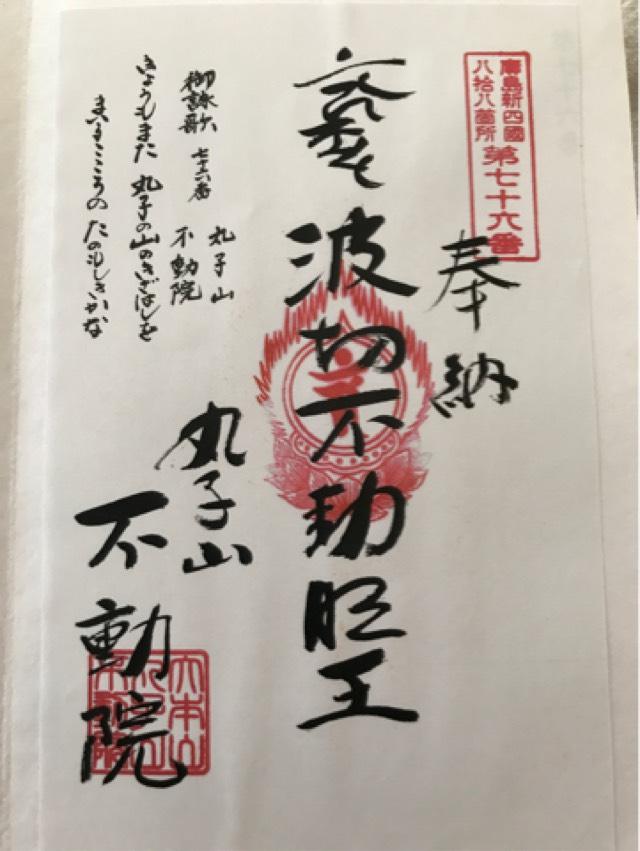 廣島新四國
八拾八箇所
第七十六番
奉納
波切不動明王
丸子山
不動院
御詠歌 七十六番 丸子山
不動院
きょうもまた 丸子の山のきざはしを
まいるこころの たのもしきかな